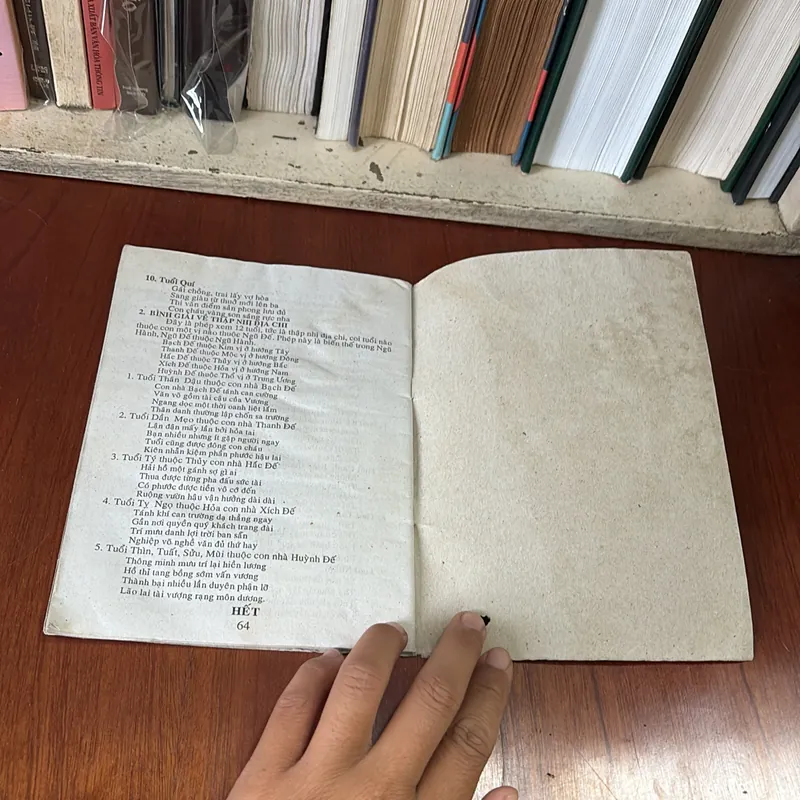 XUẤT BẢN VĂN HÓA THÔNG TIN
10. Tuổi Quí
Gái chồng, trai lấy vợ hòa
Sang giàu từ thuở mới lên ba
Thi văn điểm sẵn phong lưu đó
Con cháu vàng son sáng rực nhà
2. BÌNH GIẢI VỀ THẬP NHỊ ĐỊA CHI
Đây là phép xem 12 tuổi, tức là thập nhị địa chi, coi tuổi nào
thuộc con một vị nào thuộc Ngũ Đế. Phép này là biến thể trong Ngũ
Hành, Ngũ Đế thuộc Ngũ Hành.
Bạch Đế thuộc Kim vị ở hướng Tây
Thanh Đế thuộc Mộc vị ở hướng Đông
Hắc Đế thuộc Thủy vị ở hướng Bắc
Xích Đế thuộc Hỏa vị ở hướng Nam
Huỳnh Đế thuộc Thổ vị ở Trung Ương
1. Tuổi Thân Dậu thuộc con nhà Bạch Đế
Con nhà Bạch Đế tánh can cường
Văn võ gồm tài cậu của Vương
Ngang dọc một thời oanh liệt lắm
Thân danh thường lập chốn sa trường
2. Tuổi Dần Mẹo thuộc con nhà Thanh Đế
Lận đận mấy lần bởi hỏa tai
Bạn nhiều nhưng ít gặp người ngay
Tuổi cũng được đông con cháu
Kiên nhẫn kiệm phần phước hậu lai
3. Tuổi Tý thuộc Thủy con nhà Hắc Đế
Hải hồ một gánh sợ gì ai
Thua được từng pha đấu sức tài
Có phước được tiền vô cớ đến
Ruộng vườn hậu vận hưởng dài dài
4. Tuổi Tỵ Ngọ thuộc Hỏa con nhà Xích Đế
Tánh khí can trường dạ thẳng ngay
Gần nơi quyền quý khách trang đài
Trí mưu danh lợi trời ban sẵn
Nghiệp võ nghề văn đủ thứ hay
5. Tuổi Thìn, Tuất, Sửu, Mùi thuộc con nhà Huỳnh Đế
Thông minh mưu trí lại hiền lương
Hồ thỉ tang bồng sớm vấn vương
Thành bại nhiều lần duyên phận lỡ
Lão lai tài vượng rạng môn dương.
HẾT
64